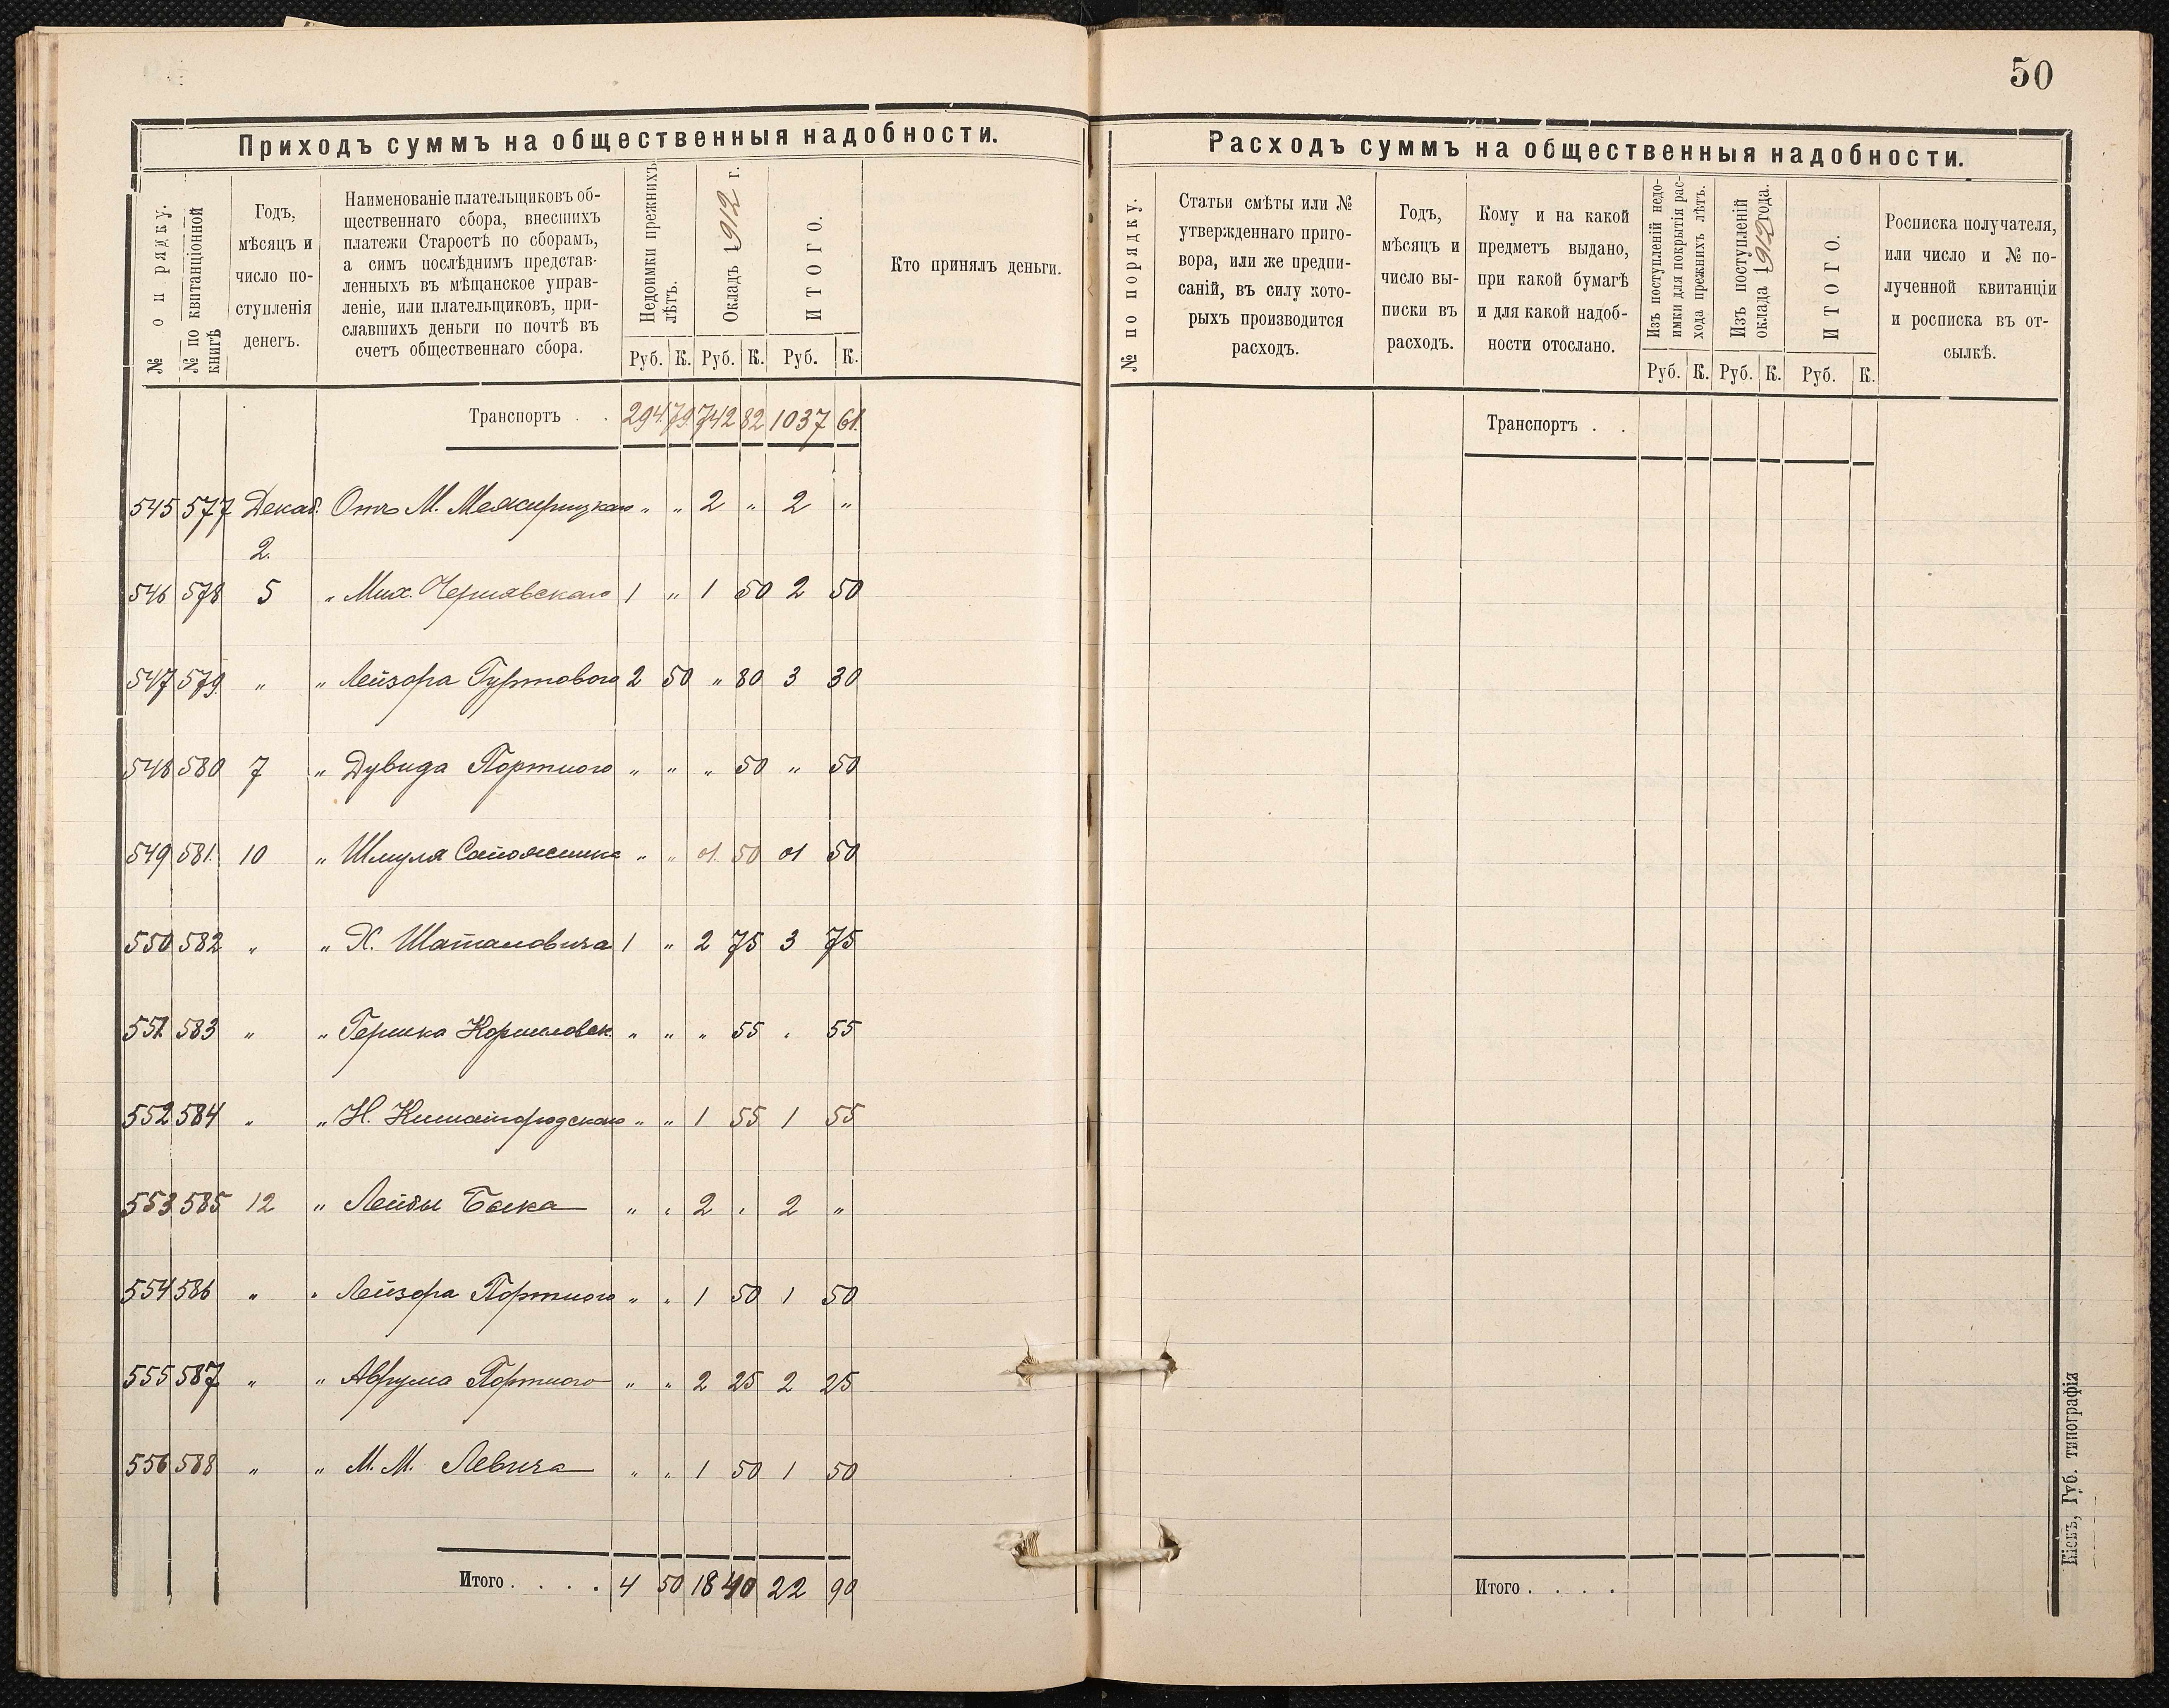 50
Приходъ суммъ на общественныя надобности.
№ по порядку.
№ по квитанціонной книгѣ
Годъ, мѣсяцъ и число поступленія денегъ.
Наименованіе плательщиковъ об-
щественнаго сбора, внесшихъ
платежи Старостѣ по сборамъ,
а симъ послѣднимъ представ-
ленныхъ въ мѣщанское управ-
леніе, или плательщиковъ, при-
славшихъ деньги по почтѣ въ
счетъ общественнаго сбора.
Недоимки прежнихъ лѣтъ.
Окладъ 1912 г.
ИТОГО.
Кто принялъ деньги.
Руб. К. Руб. К. Руб. К.
Транспортъ . . 294 79 742 82 1037 61
545 577 Декаб. Отъ М. Межирицкаго „ „ 2 „ 2 „
2.
546 578 5 „ Мих. Чернявскаго 1 „ 1 50 2 50
547 579 „ „ Лейзора Гуртового 2 50 „ 80 3 30
548 580 7 „ Дувида Портного „ „ „ 50 „ 50
549 581 10 „ Шмуля Сапожника „ „ 01 50 01 50
550 582 „ „ Х. Шатановича 1 „ 2 75 3 75
551 583 „ „ Гершка Корниловск. „ „ „ 55 „ 55
552 584 „ „ Н. Китайгородскаго „ „ 1 55 1 55
553 585 12 „ Лейбы Быка „ „ 2 „ 2 „
554 586 „ „ Лейзора Портного „ „ 1 50 1 50
555 587 „ „ Аврума Портного „ „ 2 25 2 25
556 588 „ „ М. М. Левича „ „ 1 50 1 50
Итого . . . . 4 50 18 40 22 90
Расходъ суммъ на общественныя надобности.
№ по порядку.
Статьи смѣты или №
утвержденнаго приго-
вора, или же предпи-
саній, въ силу кото-
рыхъ производится
расходъ.
Годъ,
мѣсяцъ и
число вы-
писки въ
расходъ.
Кому и на какой
предметъ выдано,
при какой бумагѣ
и для какой надоб-
ности отослано.
Изъ поступленій недо-
имки для покрытія рас-
хода прежнихъ лѣтъ.
Изъ поступленій
оклада 1912 года.
ИТОГО.
Росписка получателя,
или число и № по-
лученной квитанціи
и росписка въ от-
сылкѣ.
Руб. К. Руб. К. Руб. К.
Транспортъ . .
Итого . . . .
Кіевъ, Губ. типографія